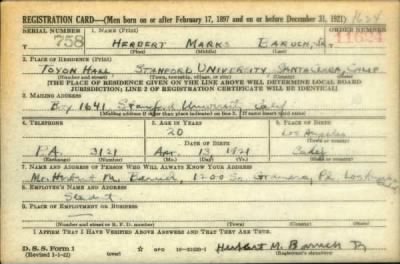 REGISTRATION CARD—(Men born on or after February 17, 1897 and on or before December 31, 1921) 1624
SERIAL NUMBER 1. NAME (Print) ORDER NUMBER
758 HERBERT MARKS BARUCH, JR. 11624
(First) (Middle) (Last)
2. PLACE OF RESIDENCE (Print)
TOYON HALL STANFORD UNIVERSITY SANTA CLARA, CALIF
(Number and street) (Town, township, village, or city) (County) (State)
[THE PLACE OF RESIDENCE GIVEN ON THE LINE ABOVE WILL DETERMINE LOCAL BOARD
JURISDICTION; LINE 2 OF REGISTRATION CERTIFICATE WILL BE IDENTICAL]
3. MAILING ADDRESS
Box 1641 Stanford University Calif
(Mailing address if other than place indicated on line 2. If same insert word same)
4. TELEPHONE 5. AGE IN YEARS 6. PLACE OF BIRTH
20 Los Angeles
DATE OF BIRTH (Town or county)
P.A. 3121 Apr. 13, 1921 Calif
(Exchange) (Number) (Mo.) (Day) (Yr.) (State or country)
7. NAME AND ADDRESS OF PERSON WHO WILL ALWAYS KNOW YOUR ADDRESS
Mr. Herbert M. Baruch, 1200 So. Gramercy Pl Los Angeles
8. EMPLOYER'S NAME AND ADDRESS
Student
9. PLACE OF EMPLOYMENT OR BUSINESS
(Number and street or R. F. D. number) (Town) (County) (State)
I AFFIRM THAT I HAVE VERIFIED ABOVE ANSWERS AND THAT THEY ARE TRUE.
D. S. S. Form 1 GPO 16—21630-1 Herbert M. Baruch Jr.
(Revised 1-1-42) (over) (Registrant's signature)